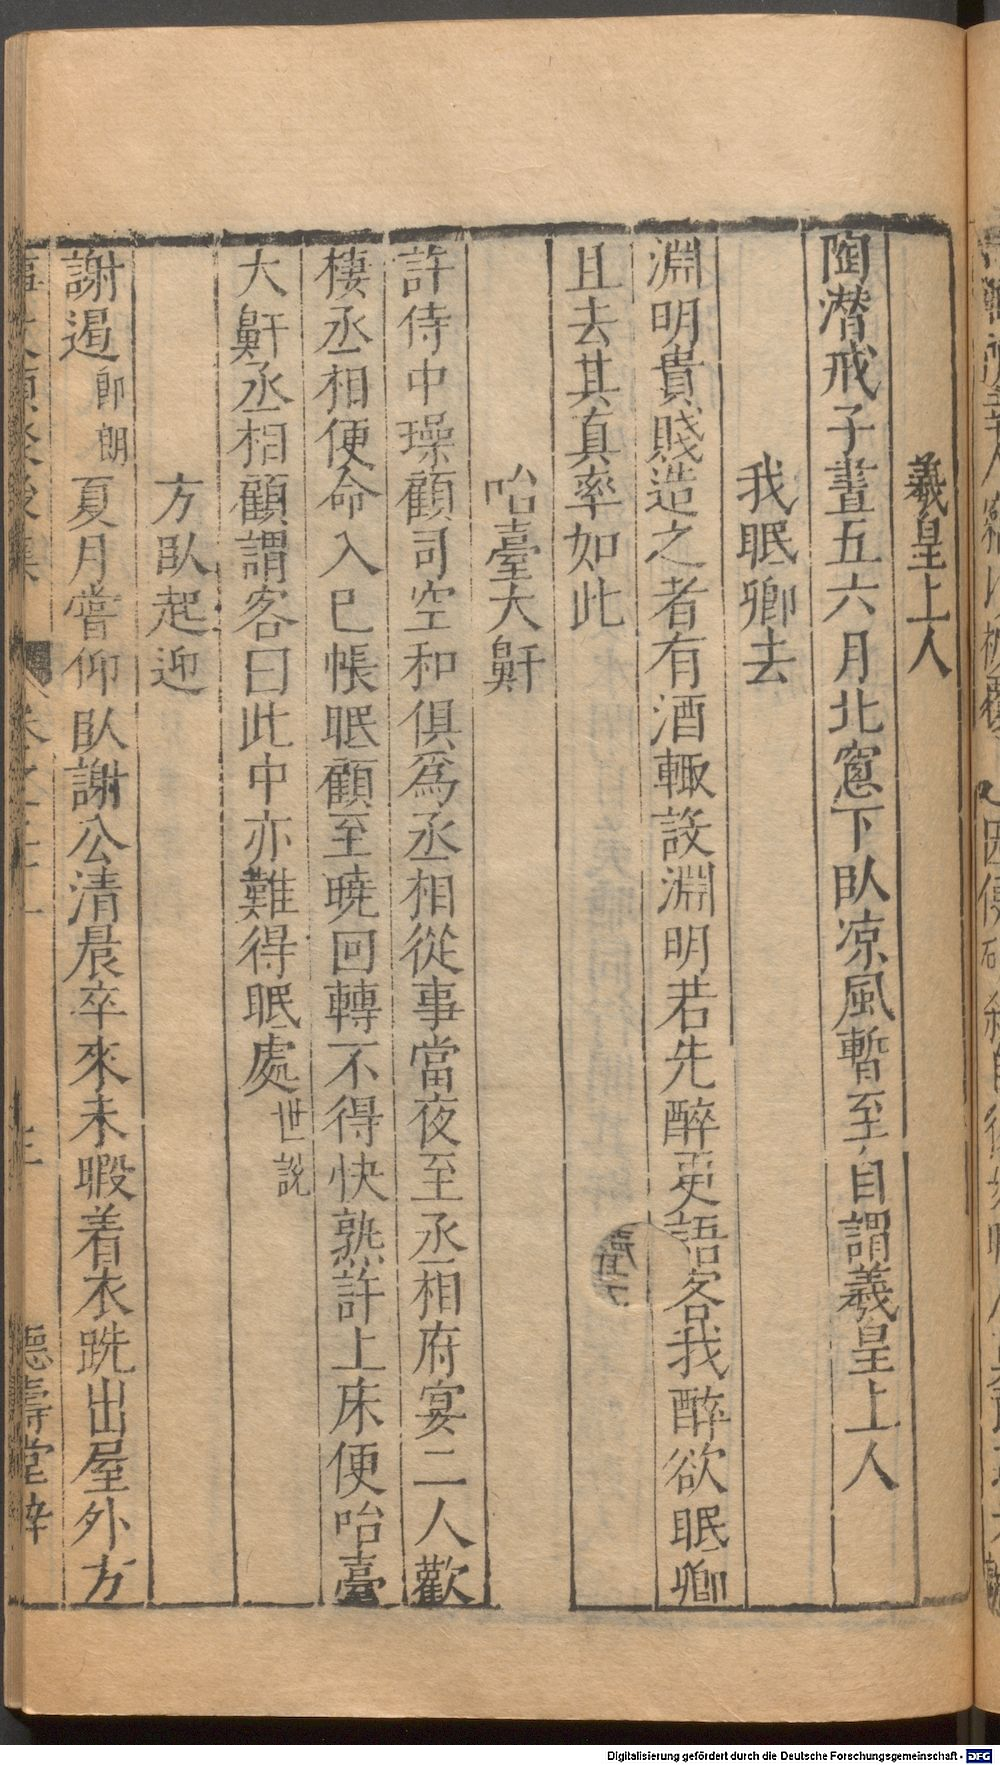 羲皇上人
陶潛戒子晝五六月北窻下臥凉風暫至自謂羲皇上人
我眠卿去
淵明貴賤造之者有酒輙設淵明若先醉更語客我醉欲眠卿
且去其真率如此
咍臺大鼾
許侍中璪顧司空和俱爲丞相從事當夜至丞相府宴二人歡
棲丞相便命入己帳眠顧至曉回轉不得快熟許上床便咍臺
大鼾丞相顧謂客曰此中亦難得眠處世說
方臥起迎
謝遏卽朗夏月嘗仰臥謝公清晨卒來未暇着衣跣出屋外方
德壽堂梓
Digitalisierung gefördert durch die Deutsche Forschungsgemeinschaft - DFG